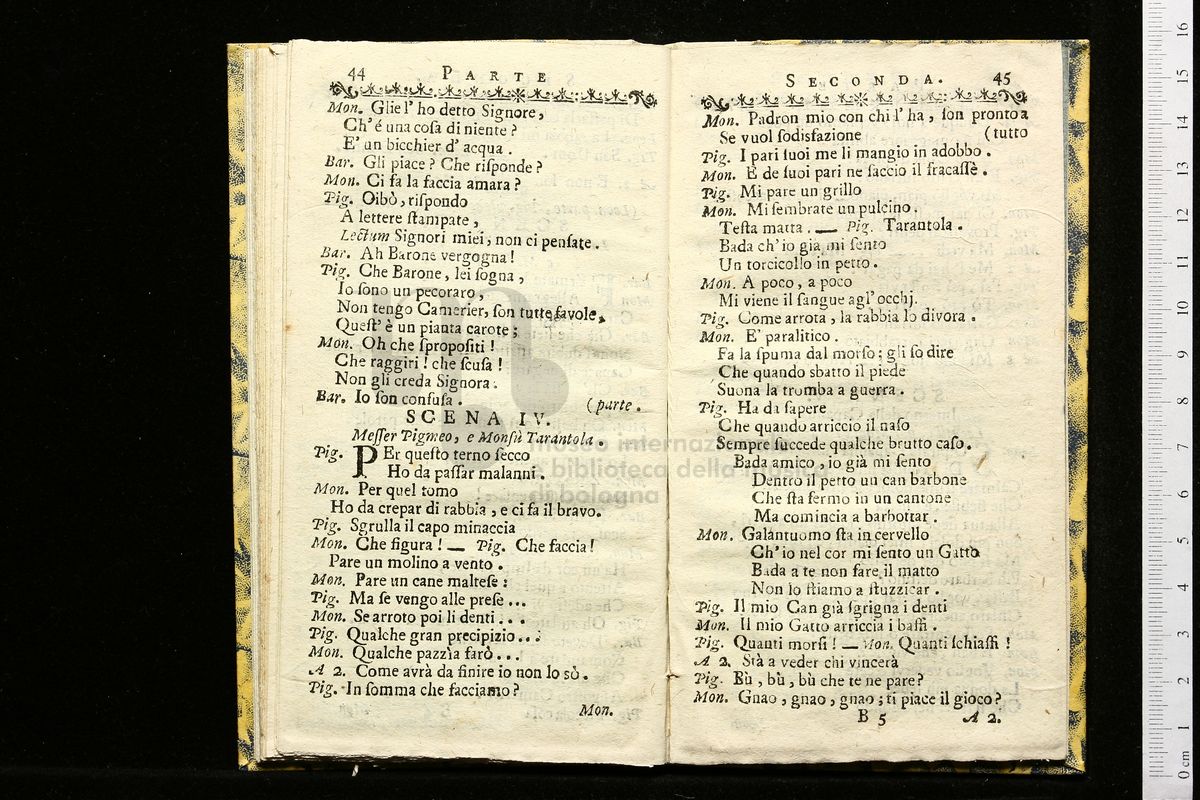 44 PARTE
Mon. Glie l' ho detto Signore,
Ch' é una coſa di niente?
E' un bicchier d' acqua.
Bar. Gli piace? Che riſponde?
Mon. Ci fa la faccia amara?
Pig. Oibò, riſpondo
A lettere ſtampate,
Lectum Signori miei, non ci penſate.
Bar. Ah Barone vergogna!
Pig. Che Barone, lei ſogna,
Io ſono un pecoraro,
Non tengo Camerier, ſon tutte favole,
Queſt' è un pianta carote;
Mon. Oh che ſpropoſiti!
Che raggiri! che ſcuſa!
Non gli creda Signora.
Bar. Io ſon confuſa. (parte.
SCENA IV.
Meſſer Pigmeo, e Monſù Tarantola.
Pig. PEr queſto terno ſecco
Ho da paſſar malanni.
Mon. Per quel tomo
Ho da crepar di rabbia, e ci fa il bravo.
Pig. Sgrulla il capo minaccia
Mon. Che figura! — Pig. Che faccia!
Pare un molino a vento.
Mon. Pare un cane malteſe:
Pig. Ma ſe vengo alle preſe ...
Mon. Se arroto poi li denti ...
Pig. Qualche gran precipizio...
Mon. Qualche pazzìa farò...
A 2. Come avrà da finire io non lo sò.
Pig. In ſomma che facciamo?
Mon.
SECONDA. 45
Mon. Padron mio con chi l' ha, ſon pronto a
Se vuol ſodisfazione (tutto
Pig. I pari ſuoi me li mangio in adobbo.
Mon. E de ſuoi pari ne faccio il fracaſſè.
Pig. Mi pare un grillo
Mon. Mi ſembrate un pulcino.
Teſta matta. — Pig. Tarantola.
Bada ch' io già mi ſento
Un torcicollo in petto.
Mon. A poco, a poco
Mi viene il ſangue agl' occhj.
Pig. Come arrota, la rabbia lo divora.
Mon. E' paralitico.
Fa la ſpuma dal morſo; gli ſo dire
Che quando sbatto il piede
Suona la tromba a guerra.
Pig. Ha da ſapere
Che quando arriccio il naſo
Sempre ſuccede qualche brutto caſo.
Bada amico, io già mi ſento
Dentro il petto un can barbone
Che ſta fermo in un cantone
Ma comincia a barbottar.
Mon. Galantuomo ſta in cervello
Ch' io nel cor mi ſento un Gatto
Bada a te non fare il matto
Non lo ſtiamo a ſtuzzicar.
Pig. Il mio Can già ſgrigna i denti
Mon. Il mio Gatto arriccia i baffi.
Pig. Quanti morſi! — Mon. Quanti ſchiaffi!
A 2. Stà a veder chi vincerà
Pig. Bù, bù, bù che te ne pare?
Mon. Gnao, gnao, gnao; ti piace il gioco?
B 5 A 2.
museo internazionale
e biblioteca della musica
di bologna
0 cm 1 2 3 4 5 6 7 8 9 10 11 12 13 14 15 16